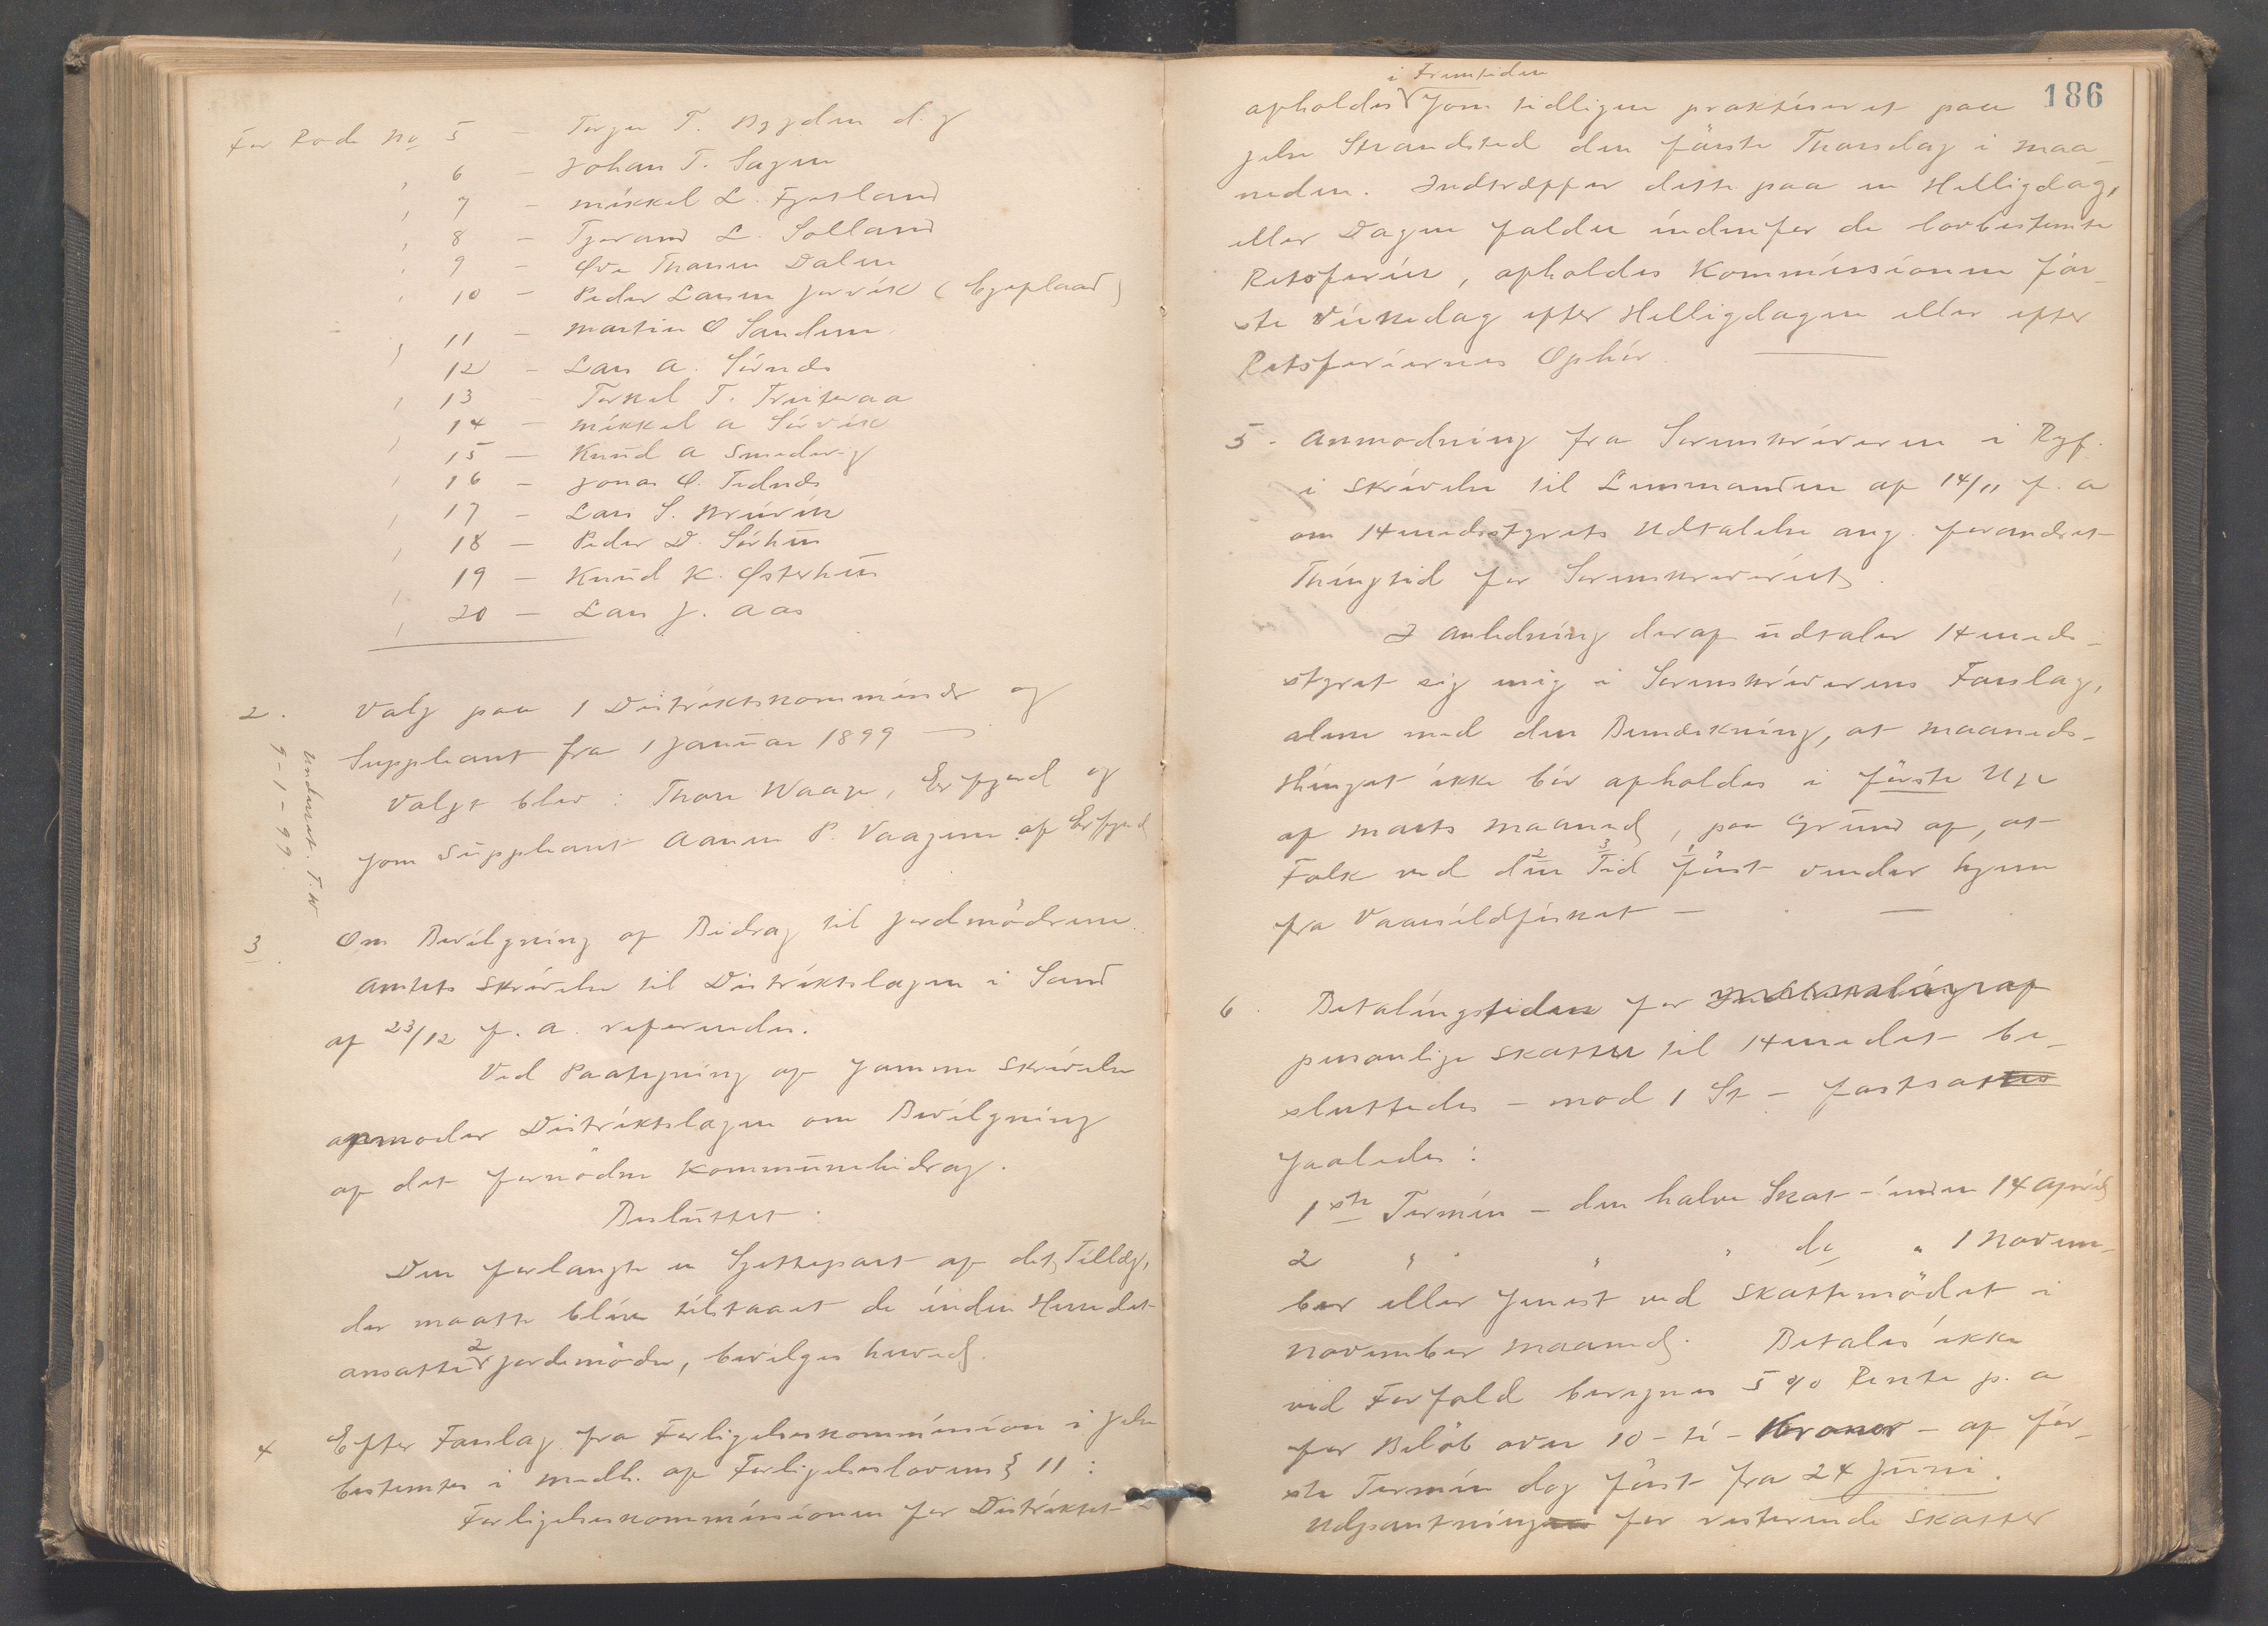 For Rode No 5 – Terjer T. Bygden d. y
„ 6 – Johan T. Sagen
„ 7 – Mikkel L. Fjetland
„ 8 – Tjerand L. Solland
„ 9 – Ove Thorsen Dalen
„ 10 – Peder Larsen Jervik (Ejeplaas)
„ 11 – Martin O Sandene
„ 12 – Lars A. Sörnæs
„ 13 – Torkel T.
„ 14 – Mikkel A Sörvik
„ 15 – Knud A Smedvig
„ 16 – Jonas O.
„ 17 – Lars S.
„ 18 – Peder D. Sörhus
„ 19 – Knud K. Østerhus
„ 20 – Lars J. Aas
2. Valg paa 1 Distriktskommissær og
Suppleant fra 1 Januar 1899 –
Valgt blev: Thore Waage, Erfjord og
som Suppleant Aanen P. Vaagene af Erfjord
Underret. T. W
9-1-99.
3. Om Bevilgning af Bidrag til Jordmödrene.
Amtets Skrivelse til Distriktslægen i Sand
af 23/12 f. a. refereredes.
Ved Paategning af samme Skrivelse
anmoder Distriktslægen om Bevilgning
af det fornødne Kommunebidrag.
Besluttet:
Den forlangte en Sjettepart af det Tillæg,
der maatte blive tilstaaet de inden Herredet
ansatte 2 Jordemödre, bevilges herved.
4 Efter Forslag fra Forligelseskommission i Jelse
bestemtes i Medh. af Forligelseslovens § 11:
Forligelseskommissionen for Distriktet
186
i Fremtiden
afholdes som tidligere praktiseret paa
Jelse Strandsted den första Thorsdag i Maa-
neden. Indtræffer dette paa en Helligdag,
eller Dagen falder indenfor de lovbestemte
Retsferier, afholdes Kommissionen för-
ste Virkedag efter Helligdagene eller efter
Retsferiernes Ophör.
5. Anmodning fra Sorenskriveren i Ryf.
i Skrivelse til Lensmanden af 14/11 f. a
om Herredsstyrets Udtalelse ang. forandret
Thingtid for Sorenskriveriet.
I Anledning deraf udtaler Herreds-
styret sig enig i Sorenskriverens Forslag,
alene med den Bemærkning, at Maaneds-
thinget ikke bör afholdes i förste Uge
af Marts Maaned, paa Grund af, at
2 3 1
Folk ved den Tid först vender hjem
fra Vaarsildfisket –
6. Betalingstiden for af
personlige Skatter til Herredet be-
sluttedes – mod 1 St – fastsat
saaledes:
1ste Termin – den halve Skat – inden 14 April
2 „ „ „ do „ 1 Novem-
ber eller senest ved Skattemödet i
November Maaned. Betales ikke
ved Forfald beregnes 5 % Rente p. a
for Belöb over 10 – ti – Kroner – af för-
ste Termin dog först fra 24 Juni.
Udpantning for resterende Skatter